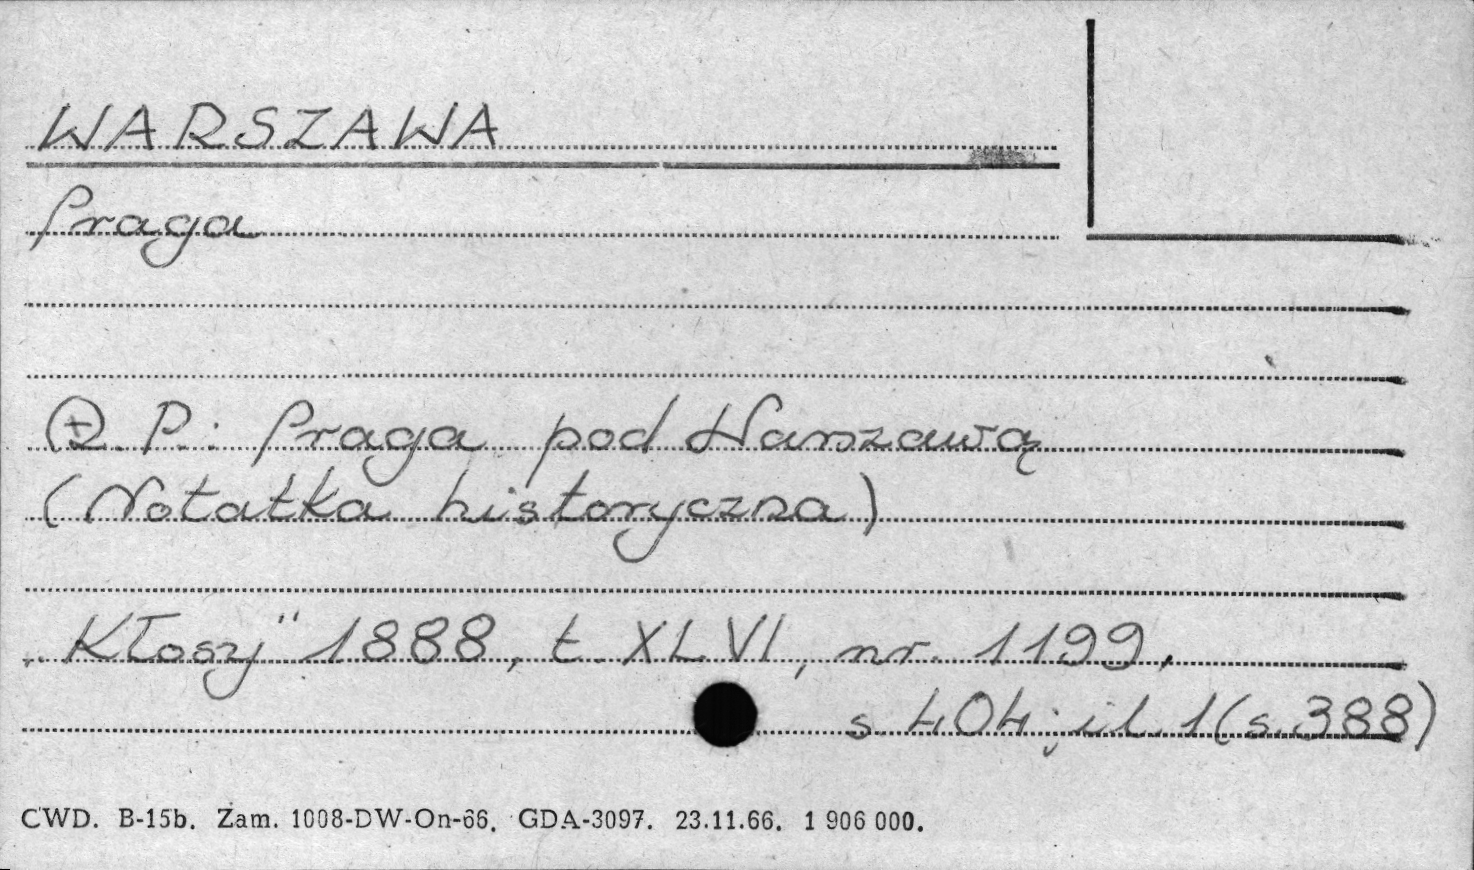 WARSZAWA
Praga
P.: Praga pod Warszawą
(Notatka historyczna)
„Kłosy" 1888, t. XLVI, nr. 1199,
s. 404; il. 1 (s. 388)
CWD. B-15b. Zam. 1008-DW-On-66. GDA-3097. 23.11.66. 1 906 000.